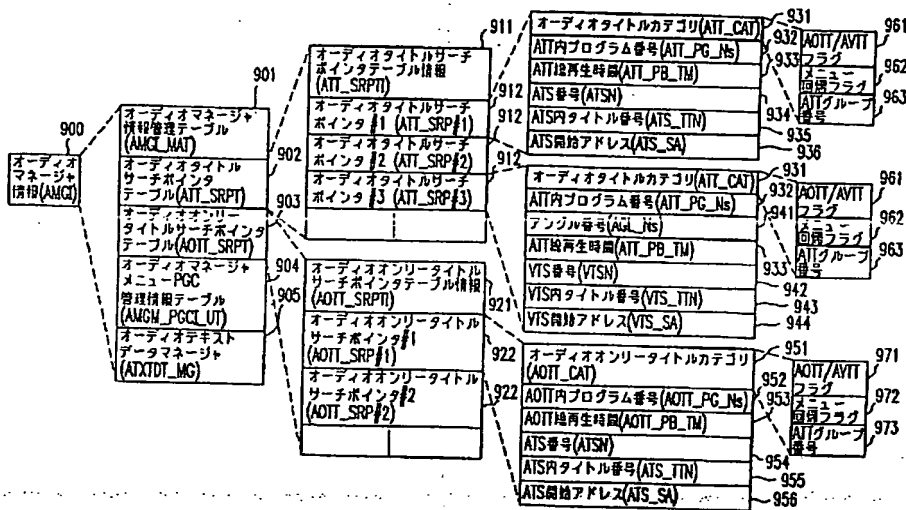 900
オーディオ
マネージャ
情報(AMGI)
901
オーディオマネージャ
情報管理テーブル
(AMGI_MAT)
902
オーディオタイトル
サーチポインタ
テーブル(ATT_SRPT)
903
オーディオオンリー
タイトルサーチポインタ
テーブル(AOTT_SRPT)
904
オーディオマネージャ
メニューPGC
管理情報テーブル
(AMGM_PGCI_UT)
905
オーディオテキスト
データマネージャ
(ATXTDT_MG)
911
オーディオタイトルサーチ
ポインタテーブル情報
(ATT_SRPTI)
912
オーディオタイトルサーチ
ポインタ#1 (ATT_SRP#1)
912
オーディオタイトルサーチ
ポインタ#2 (ATT_SRP#2)
912
オーディオタイトルサーチ
ポインタ#3 (ATT_SRP#3)
オーディオオンリータイトル
サーチポインタテーブル情報
(AOTT_SRPTI)
921
オーディオオンリータイトル
サーチポインタ#1
(AOTT_SRP#1)
922
オーディオオンリータイトル
サーチポインタ#2
(AOTT_SRP#2)
922
オーディオタイトルカテゴリ(ATT_CAT)
931
ATT内プログラム番号(ATT_PG_Ns)
932
ATT総再生時間(ATT_PB_TM)
933
ATS番号(ATSN)
934
ATS内タイトル番号(ATS_TTN)
935
ATS開始アドレス(ATS_SA)
936
AOTT/AVTT
フラグ
961
メニュー
回帰フラグ
962
ATTグループ
番号
963
オーディオタイトルカテゴリ(ATT_CAT)
931
ATT内プログラム番号(ATT_PG_Ns)
932
アングル番号(AGL_Ns)
941
ATT総再生時間(ATT_PB_TM)
933
VTS番号(VTSN)
942
VTS内タイトル番号(VTS_TTN)
943
VTS開始アドレス(VTS_SA)
944
AOTT/AVTT
フラグ
961
メニュー
回帰フラグ
962
ATTグループ
番号
963
オーディオオンリータイトルカテゴリ
(AOTT_CAT)
951
AOTT内プログラム番号(AOTT_PG_Ns)
952
AOTT総再生時間(AOTT_PB_TM)
953
ATS番号(ATSN)
954
ATS内タイトル番号(ATS_TTN)
955
ATS開始アドレス(ATS_SA)
956
AOTT/AVTT
フラグ
971
メニュー
回帰フラグ
972
ATTグループ
番号
973